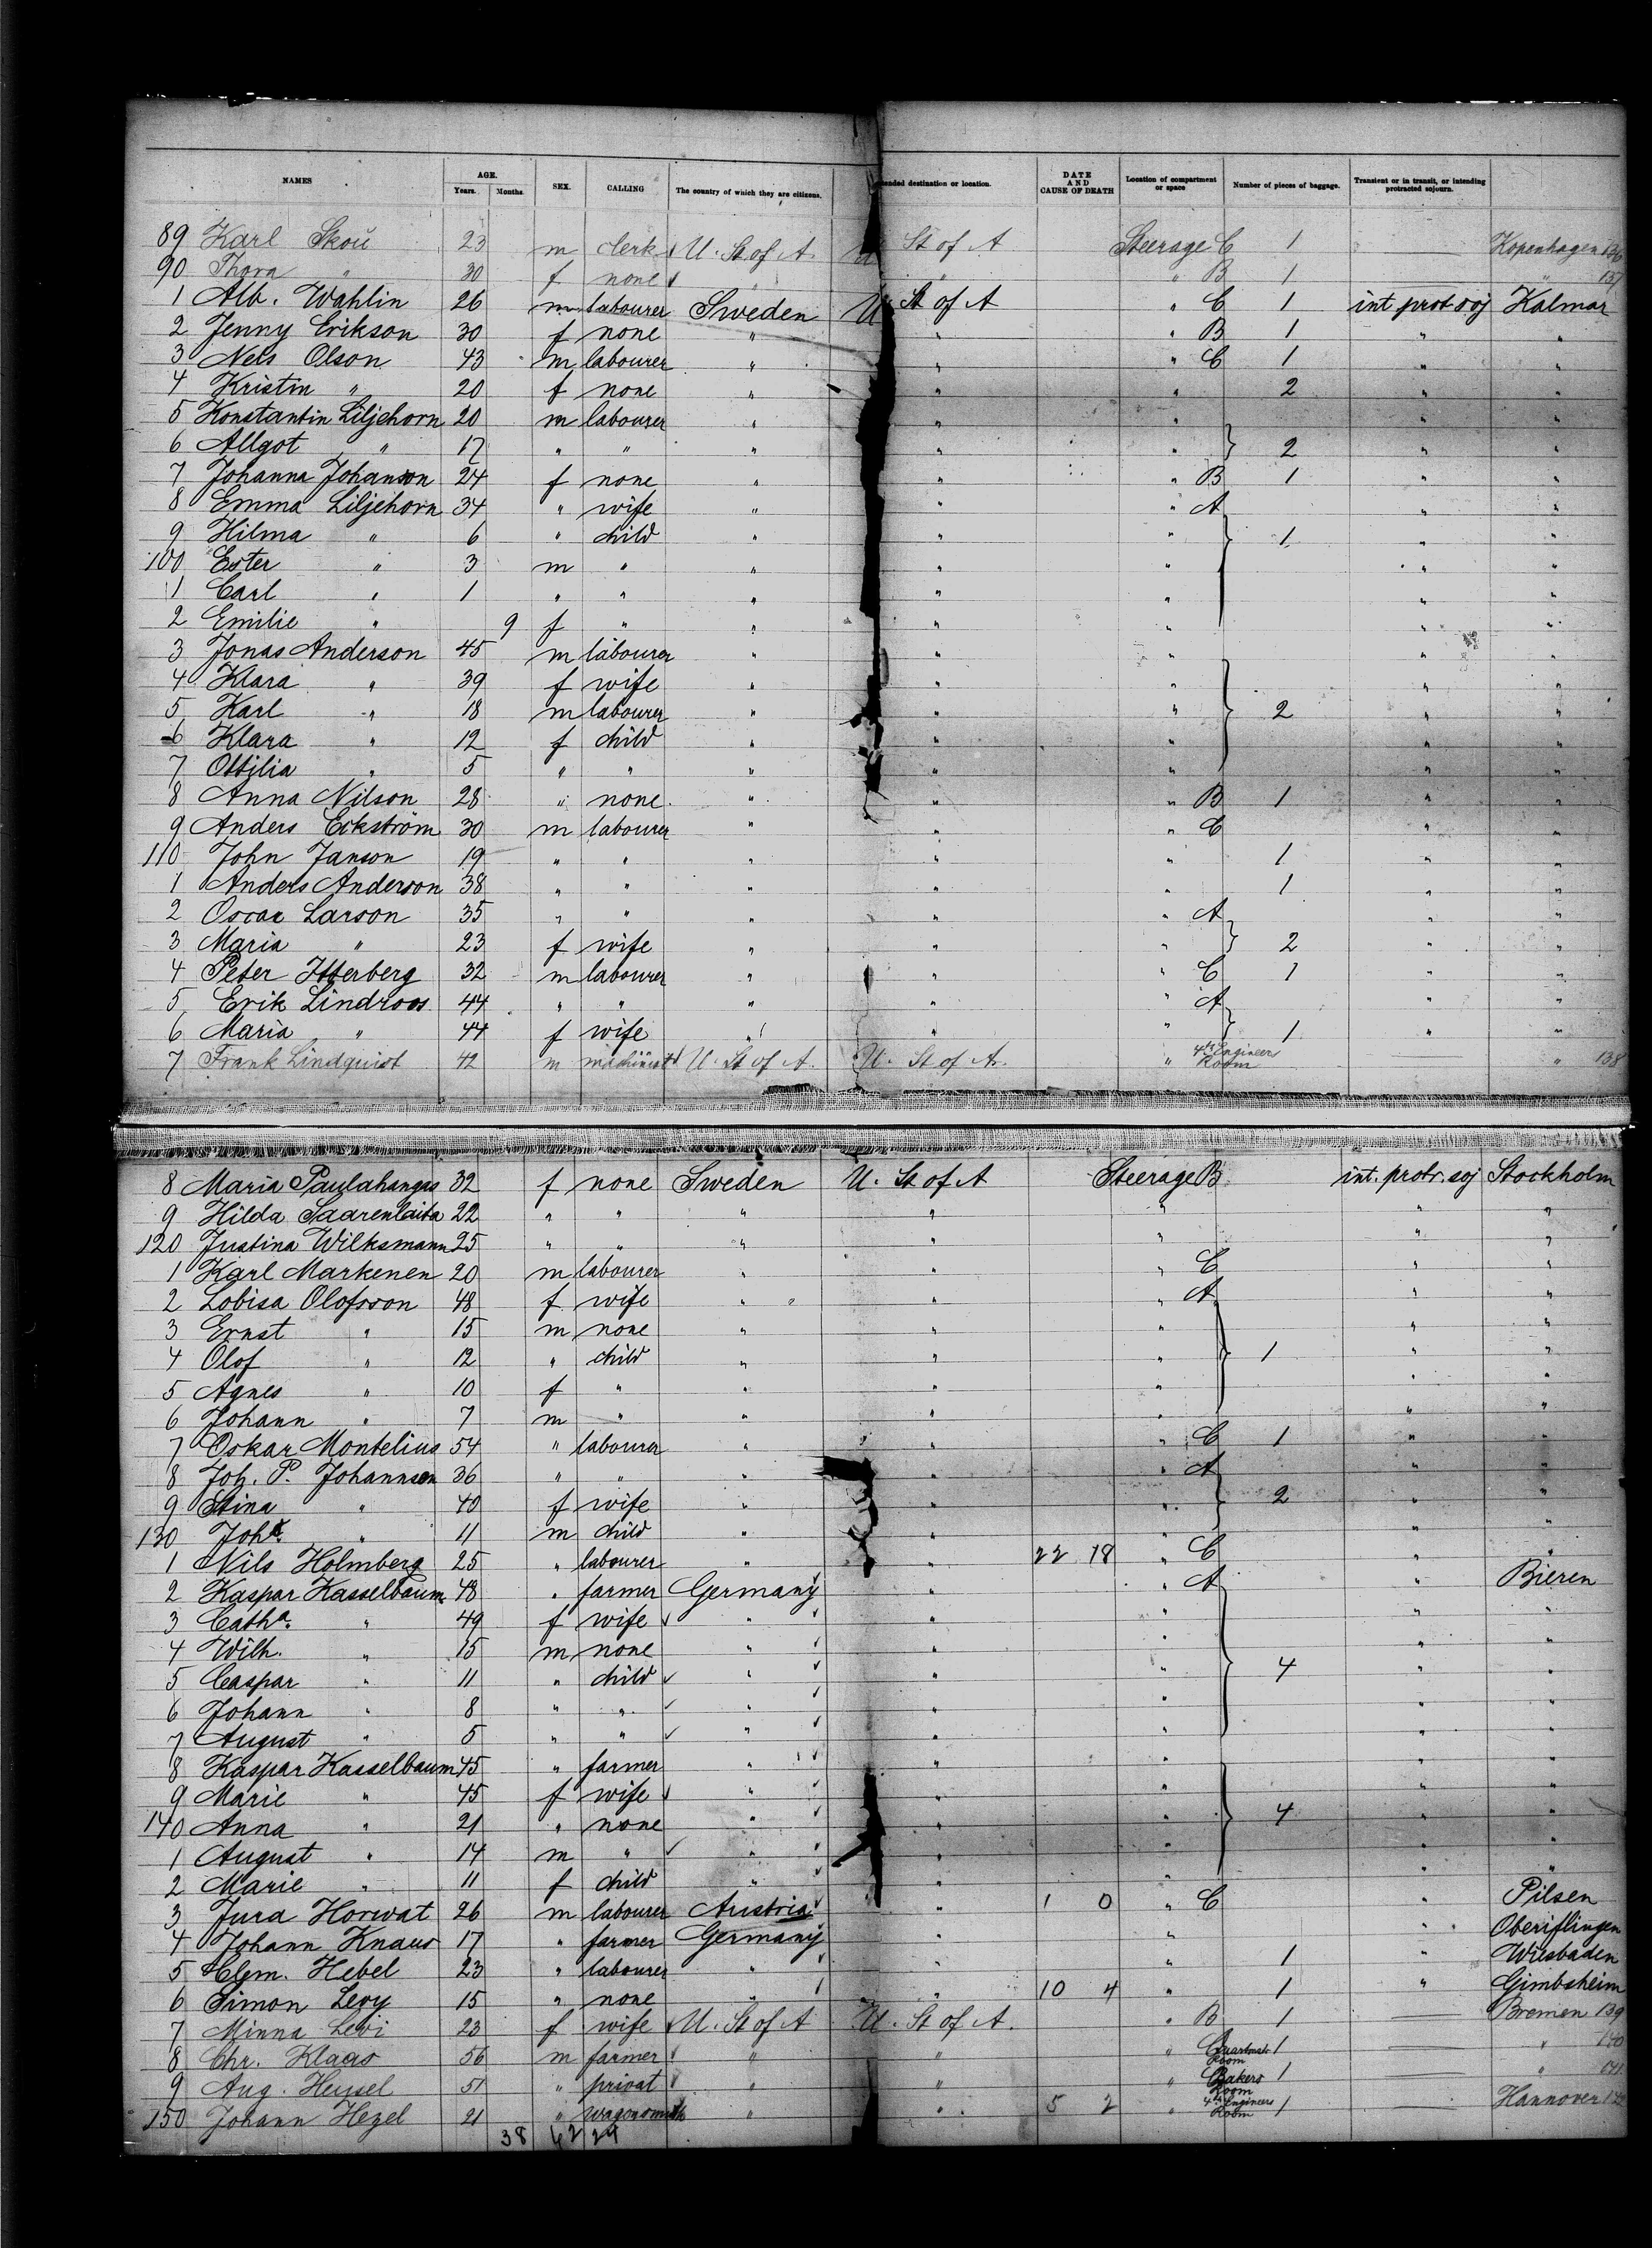 NAMES AGE. Years. Months. SEX. CALLING The country of which they are citizens. ended destination or location. DATE AND CAUSE OF DEATH Location of compartment or space Number of pieces of baggage. Transient or in transit, or intending protracted sojourn.
89 Karl Skou 23 m clerk U. St of A. U St of A Steerage C 1 — Kopenhagen 136
90 Thora " 30 f none " " " B 1 " 137
1 Alb. Wahlin 26 m labourer Sweden U St of A " C 1 int prot soj Kalmar
2 Jenny Erikson 30 f none " " " B 1 " "
3 Nels Olson 43 m labourer " " " C 1 " "
4 Kristin " 20 f none " " " 2 " "
5 Konstantin Liljehorn 20 m labourer " " " " "
6 Allgot " 17 " " " " " } 2 " "
7 Johanna Johanson 24 f none " " " B 1 " "
8 Emma Liljehorn 34 " wife " " " A " "
9 Hilma " 6 " child " " " } 1 " "
100 Ester " 3 m " " " " " "
1 Carl " 1 " " " " " " "
2 Emilie " 9 f " " " " " "
3 Jonas Anderson 45 m labourer " " " " "
4 Klara " 39 f wife " " " " "
5 Karl " 18 m labourer " " " } 2 " "
6 Klara " 12 f child " " " " "
7 Ottilia " 5 " " " " " " "
8 Anna Nilson 28 " none " " " B 1 " "
9 Anders Eckström 30 m labourer " " " C " "
110 John Janson 19 " " " " " 1 " "
1 Anders Anderson 38 " " " " " 1 " "
2 Oscar Larson 35 " " " " " A " "
3 Maria " 23 f wife " " " } 2 " "
4 Peter Itterberg 32 m labourer " " " C 1 " "
5 Erik Lindroos 44 " " " " " A " "
6 Maria " 44 f wife " " " } 1 " "
7 Frank Lindquist 42 m machinist U. St of A. U. St of A. " 4th Engineers Room " 138
8 Maria Paulahangas 32 f none Sweden U. St of A Steerage B int. protr. soj Stockholm
9 Hilda Saarenlaita 22 " " " " " " "
120 Justina Wilksmann 25 " " " " " " "
1 Karl Markenen 20 m labourer " " " C " "
2 Lobisa Olofsson 48 f wife " " " A " "
3 Ernst " 15 m none " " " " "
4 Olof " 12 " child " " " } 1 " "
5 Agnes " 10 f " " " " " "
6 Johann " 7 m " " " " " "
7 Oskar Montelius 54 " labourer " " " C 1 " "
8 Joh. P. Johannsen 36 " " " " " A " "
9 Stina " 40 f wife " " " } 2 " "
130 Joh. " 11 m child " " " " "
1 Nils Holmberg 25 " labourer " " 22 18 " C " "
2 Kaspar Kasselbaum 48 " farmer Germany " " A " Bieren
3 Catha. " 49 f wife " " " " "
4 Wilh. " 15 m none " " " " "
5 Caspar " 11 " child " " " } 4 " "
6 Johann " 8 " " " " " " "
7 August " 5 " " " " " " "
8 Kaspar Kasselbaum 45 " farmer " " " " "
9 Marie " 45 f wife " " " " "
140 Anna " 21 " none " " " } 4 " "
1 August " 14 m " " " " " "
2 Marie " 11 f child " " " " "
3 Jura Horwat 26 m labourer Austria " 1 0 " C " Pilsen
4 Johann Knaus 17 " farmer Germany " " " Oberiflingen
5 Clem. Hebel 23 " labourer " " " 1 " Wiesbaden
6 Simon Levy 15 " none " " 10 4 " 1 " Gimbsheim
7 Minna Levi 23 f wife U. St of A U. St of A. " B 1 — Bremen 139
8 Chr. Klaas 56 m farmer " " " Room 1 — " 140
9 Aug. Heusel 51 " privat " " " Bakers Room 1 — " 141
150 Johann Hezel 21 " wagonsmith " " 5 2 " 4th Engineers Room 1 — Hannover 142
38 62 29